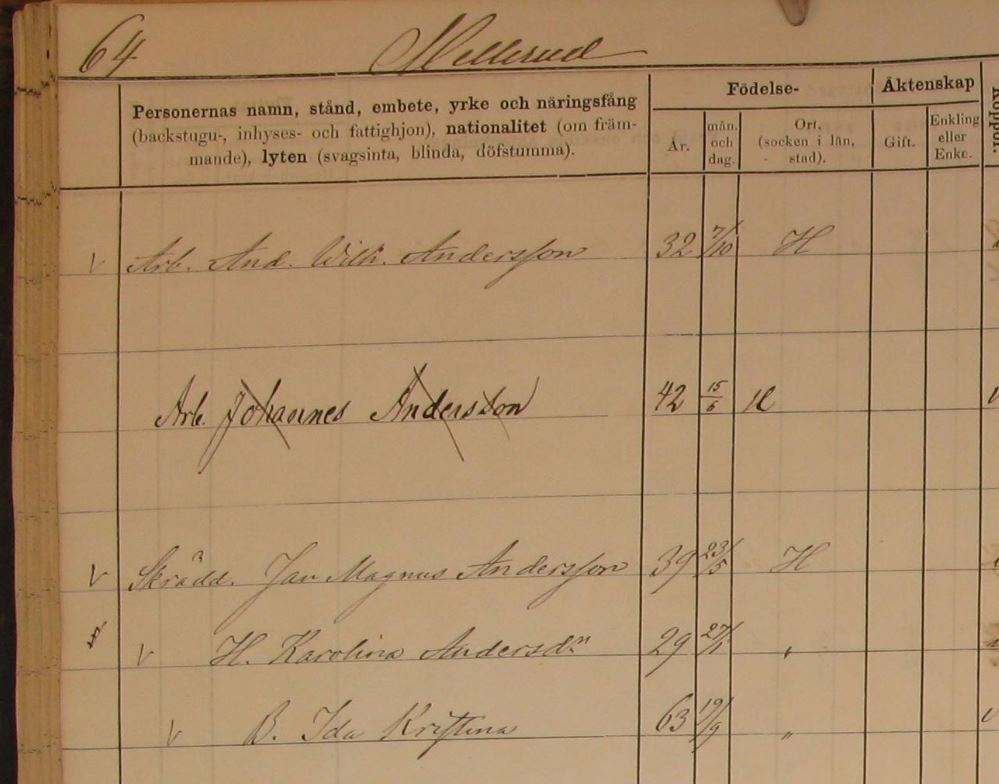 64 Mellerud
Födelse- Äktenskap
Personernas namn, stånd, embete, yrke och näringsfång
(backstugu-, inhyses- och fattighjon), nationalitet (om främ-
mande), lyten (svagsinta, blinda, döfstumma).
År. mån. och dag. Ort. (socken i län, stad). Gift. Enkling eller Enke. Koppor.
v Arb. And. Wilh. Andersson 32 7/10 H
Arb. Johannes Andersson 42 15/6 H
v Skrädd. Jan Magnus Andersson 39 23/5 H
v H. Karolina Andersdn 29 27/1 "
v B. Ida Kristina 63 19/9 "